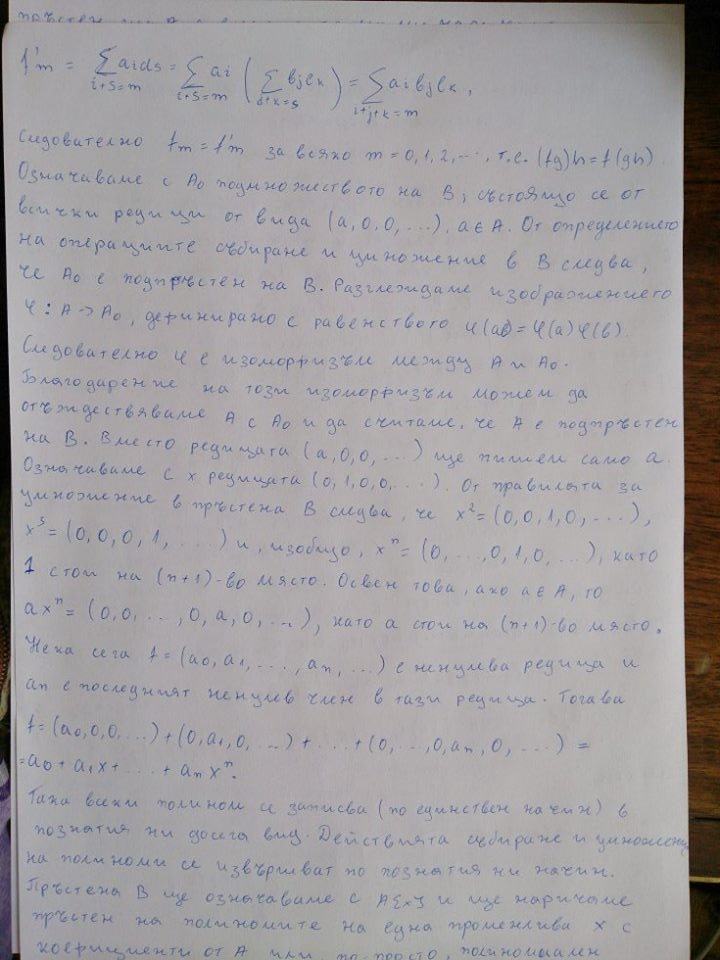 f'm = ∑ aids = ∑ ai ( ∑ bjck ) = ∑ aibjck ,
i+s=m i+s=m j+k=s i+j+k=m
Следователно fm = f'm за всяко m = 0,1,2,..., т.е. (fg)h = f(gh)
Означаваме с A₀ подмножеството на B, състоящо се от
всички редици от вида (a,0,0,...), a∈A. От определението
на операциите събиране и умножение в B следва,
че A₀ е подпръстен на B. Разглеждаме изображението
φ: A -> A₀, дефинирано с равенството φ(ab) = φ(a)φ(b).
Следователно φ е изоморфизъм между A и A₀.
Благодарение на този изоморфизъм можем да
отъждествяваме A с A₀ и да считаме, че A е подпръстен
на B. Вместо редицата (a,0,0,...) ще пишем само a.
Означаваме с x редицата (0,1,0,0,...). От правилата за
умножение в пръстена B следва, че x² = (0,0,1,0,...),
x³ = (0,0,0,1,...) и, изобщо, xⁿ = (0,...,0,1,0,...), като
1 стои на (n+1)-во място. Освен това, ако a∈A, то
axⁿ = (0,0,...,0,a,0,...), като a стои на (n+1)-во място.
Нека сега f = (a₀,a₁,...,an,...) е ненулева редица и
an е последният ненулев член в тази редица. Тогава
f = (a₀,0,0,...)+(0,a₁,0,...)+...+(0,...,0,an,0,...) =
= a₀ + a₁x + ... + anxⁿ.
Така всеки полином се записва (по единствен начин) в
познатия ни досега вид. Действията събиране и умножение
на полиноми се извършват по познатия ни начин.
Пръстена B ще означаваме с A[x] и ще наричаме
пръстен на полиномите на една променлива x с
коефициенти от A или, по-просто, полиномиален